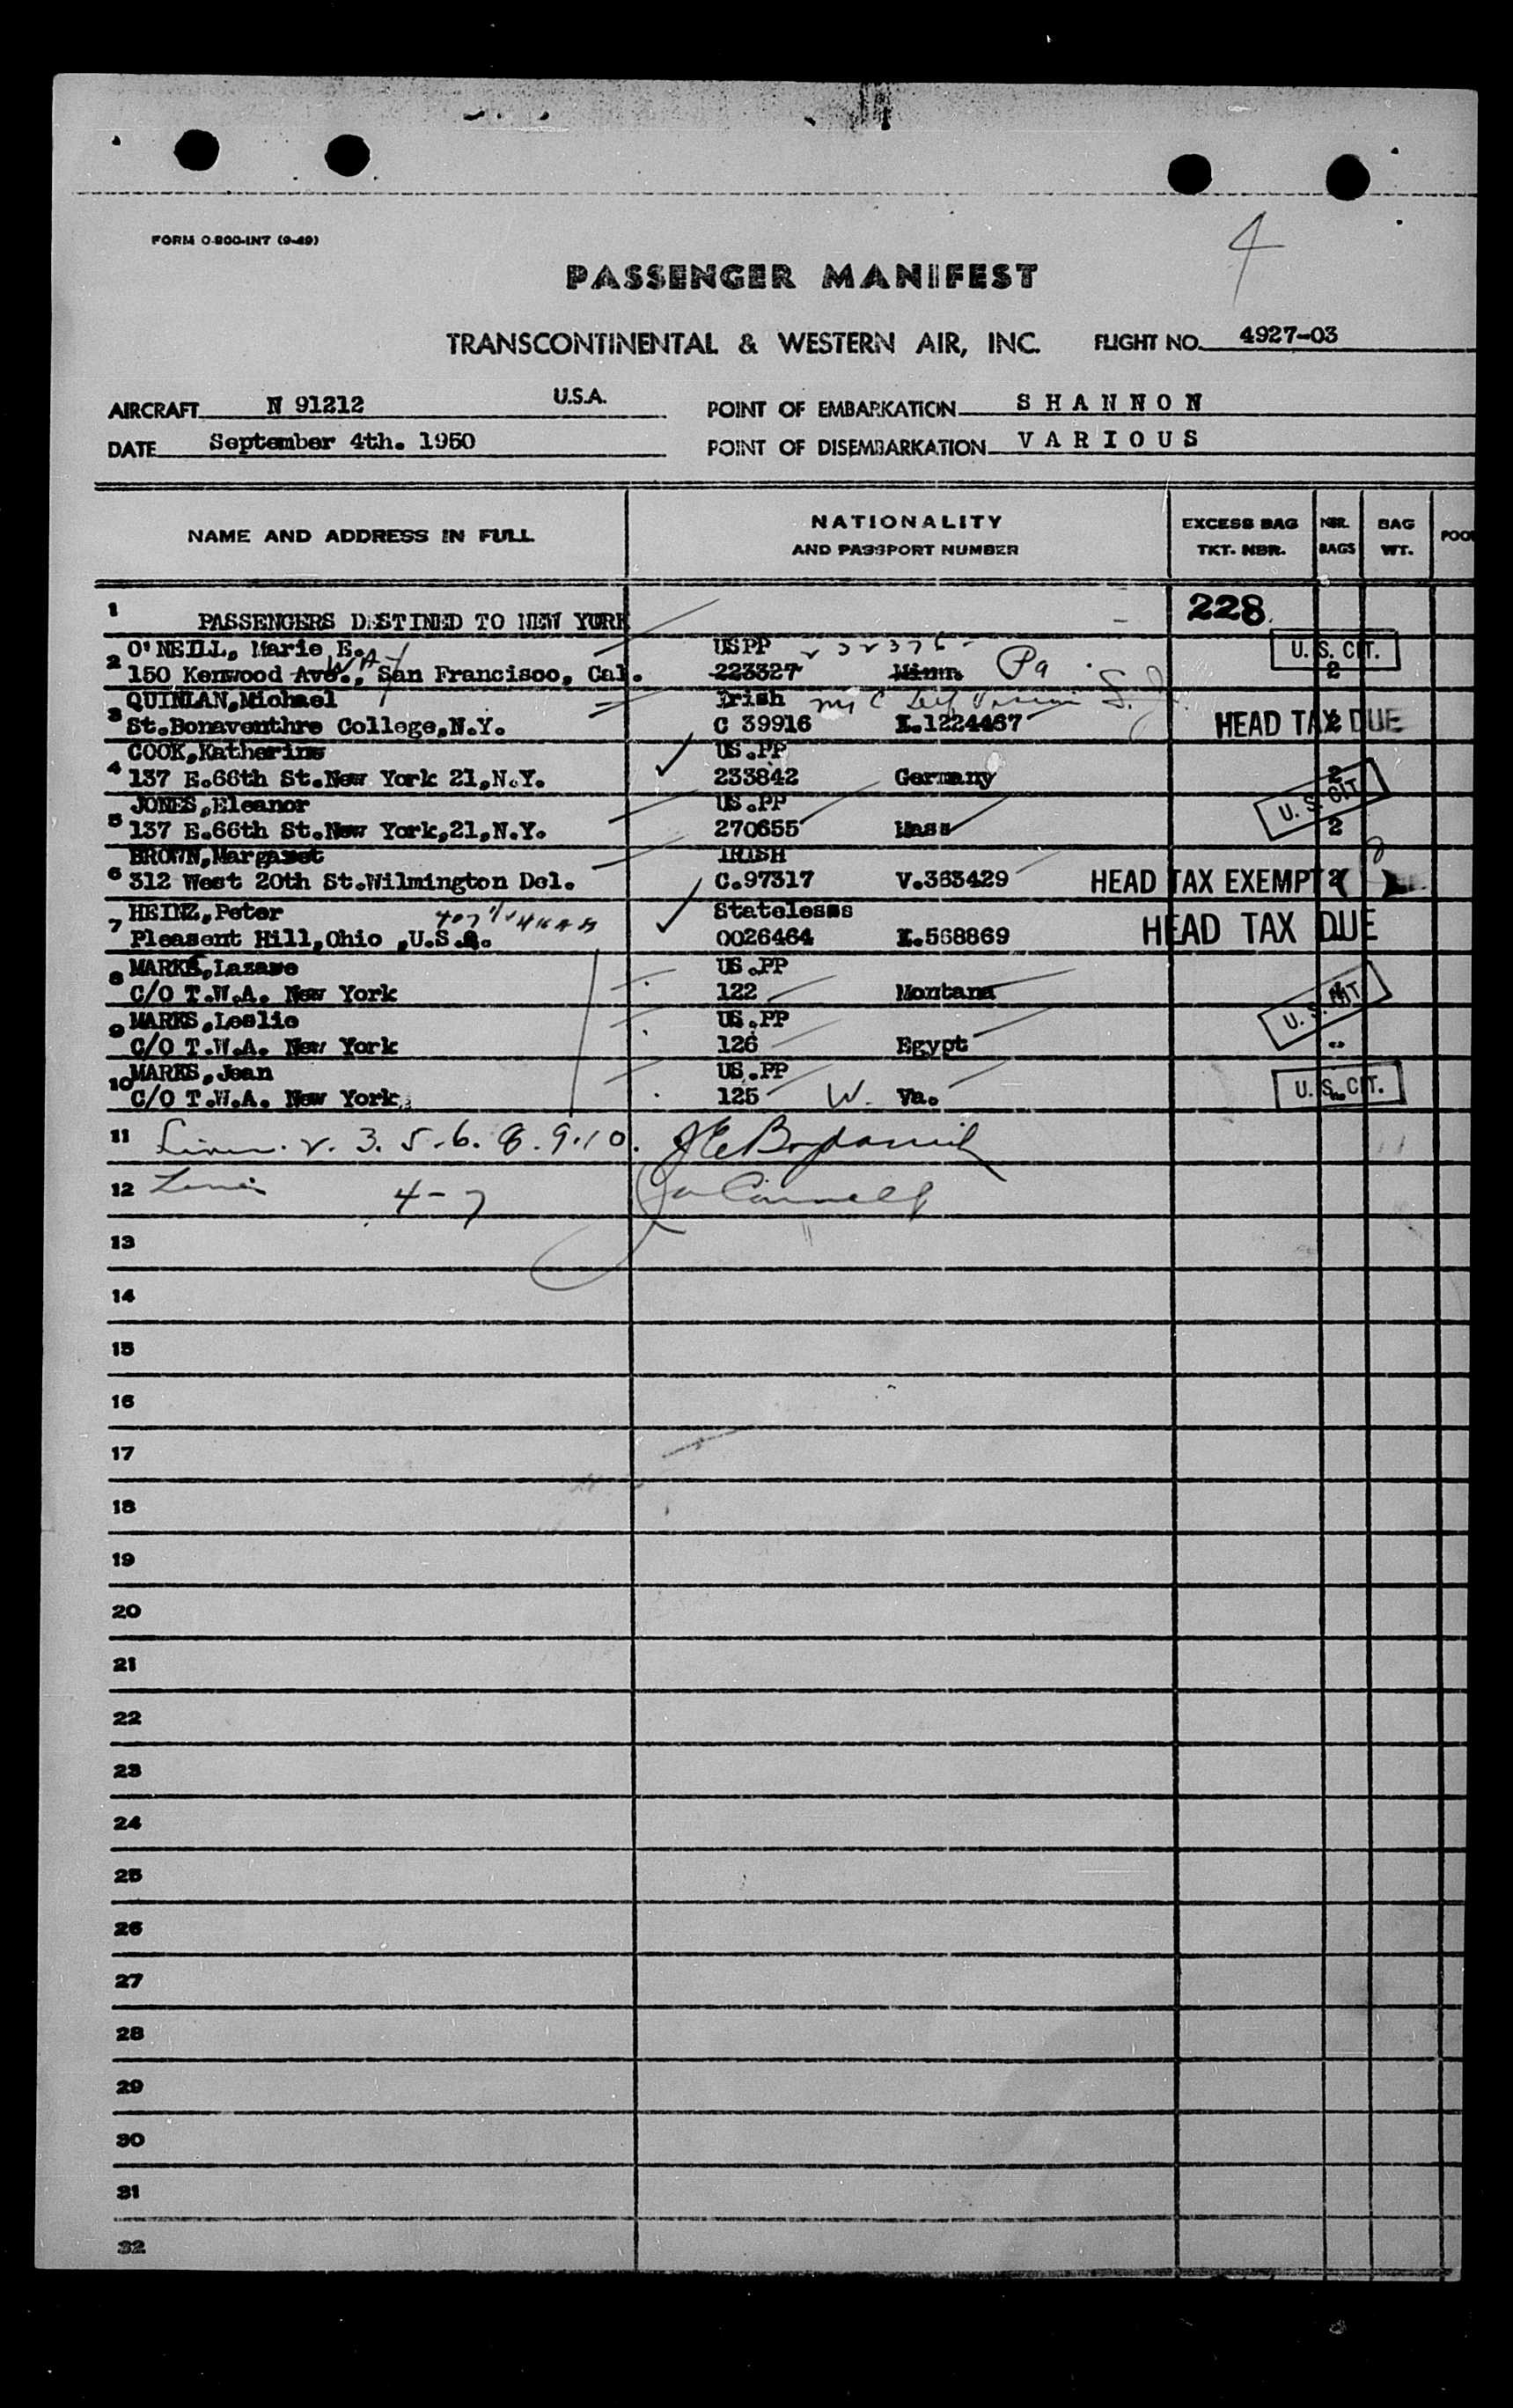 4
FORM O-800-INT (9-49)
PASSENGER MANIFEST
TRANSCONTINENTAL & WESTERN AIR, INC. FLIGHT NO. 4927-03
AIRCRAFT N 91212 U.S.A. POINT OF EMBARKATION S H A N N O N
DATE September 4th. 1950 POINT OF DISEMBARKATION V A R I O U S
NAME AND ADDRESS IN FULL NATIONALITY AND PASSPORT NUMBER EXCESS BAG TKT. NBR. NBR. BAGS BAG WT.
1 PASSENGERS DESTINED TO NEW YORK 228
O'NEILL, Marie E. USPP U. S. CIT.
2 150 Kenwood Ave., San Francisco, Cal. 223327 Minn Pa 2
QUINLAN,Michael Irish
3 St.Bonaventhre College,N.Y. C 39916 I.1224467 HEAD TAX DUE 2
COOK,Katherine US.PP
4 137 E.66th St.New York 21,N.Y. 233842 Germany 2
JONES,Eleanor US.PP U. S. CIT
5 137 E.66th St.New York,21,N.Y. 270655 Mass 2
BROWN,Margaret IRISH
6 312 West 20th St.Wilmington Del. C.97317 V.363429 HEAD TAX EXEMPT 2
HEINZ,Peter Stateless
7 Pleasent Hill,Ohio ,U.S.A. 0026464 I.568869 HEAD TAX DUE
MARKS,Lazare US.PP
8 C/O T.W.A. New York 122 Montana U. S. CIT
MARKS,Leslie US.PP
9 C/O T.W.A. New York 126 Egypt "
MARKS,Jean US.PP
10 C/O T.W.A. New York 125 W. Va. U. S. CIT.
11 2. 3. 5. 6. 8. 9. 10.
12 4-7
13
14
15
16
17
18
19
20
21
22
23
24
25
26
27
28
29
30
31
32